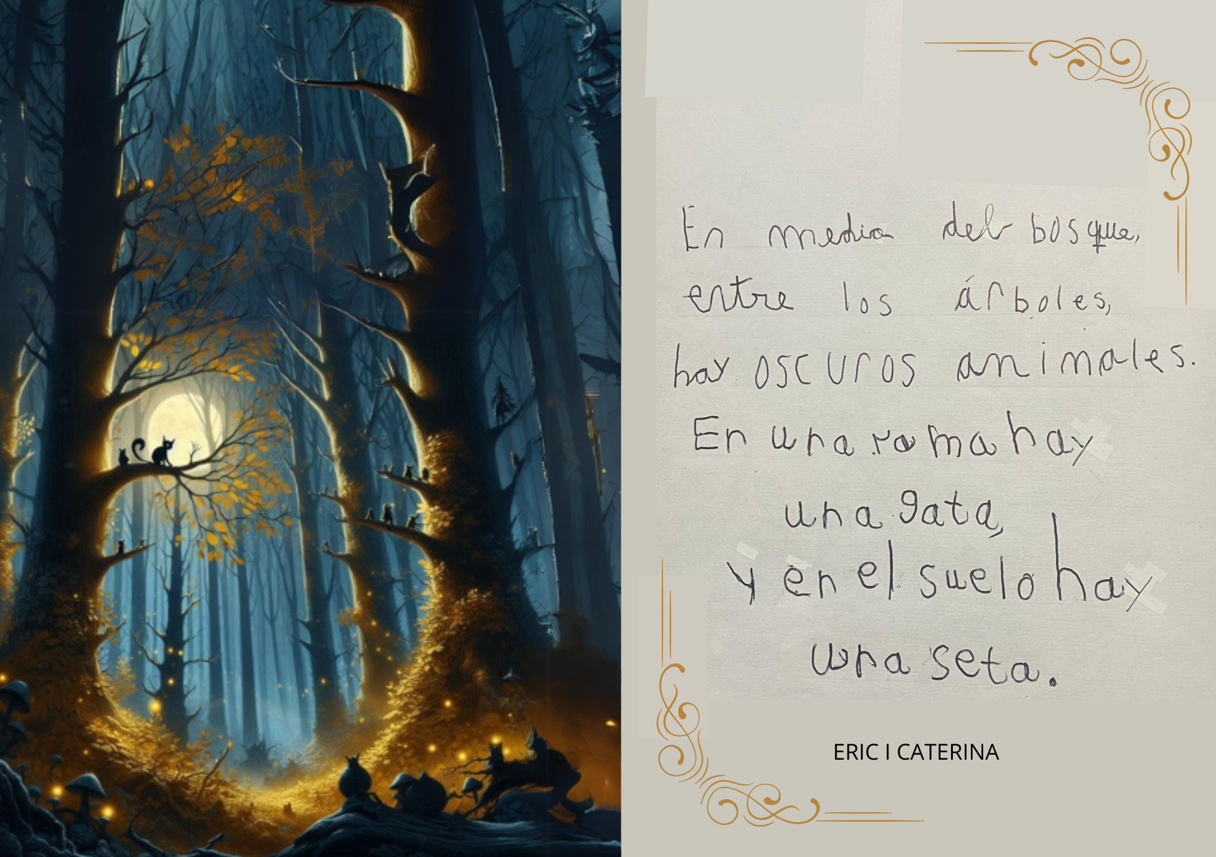 En medio del bosque,
entre los árboles,
hay oscuros animales.
En una rama hay
una gata,
y en el suelo hay
una seta.
ERIC I CATERINA